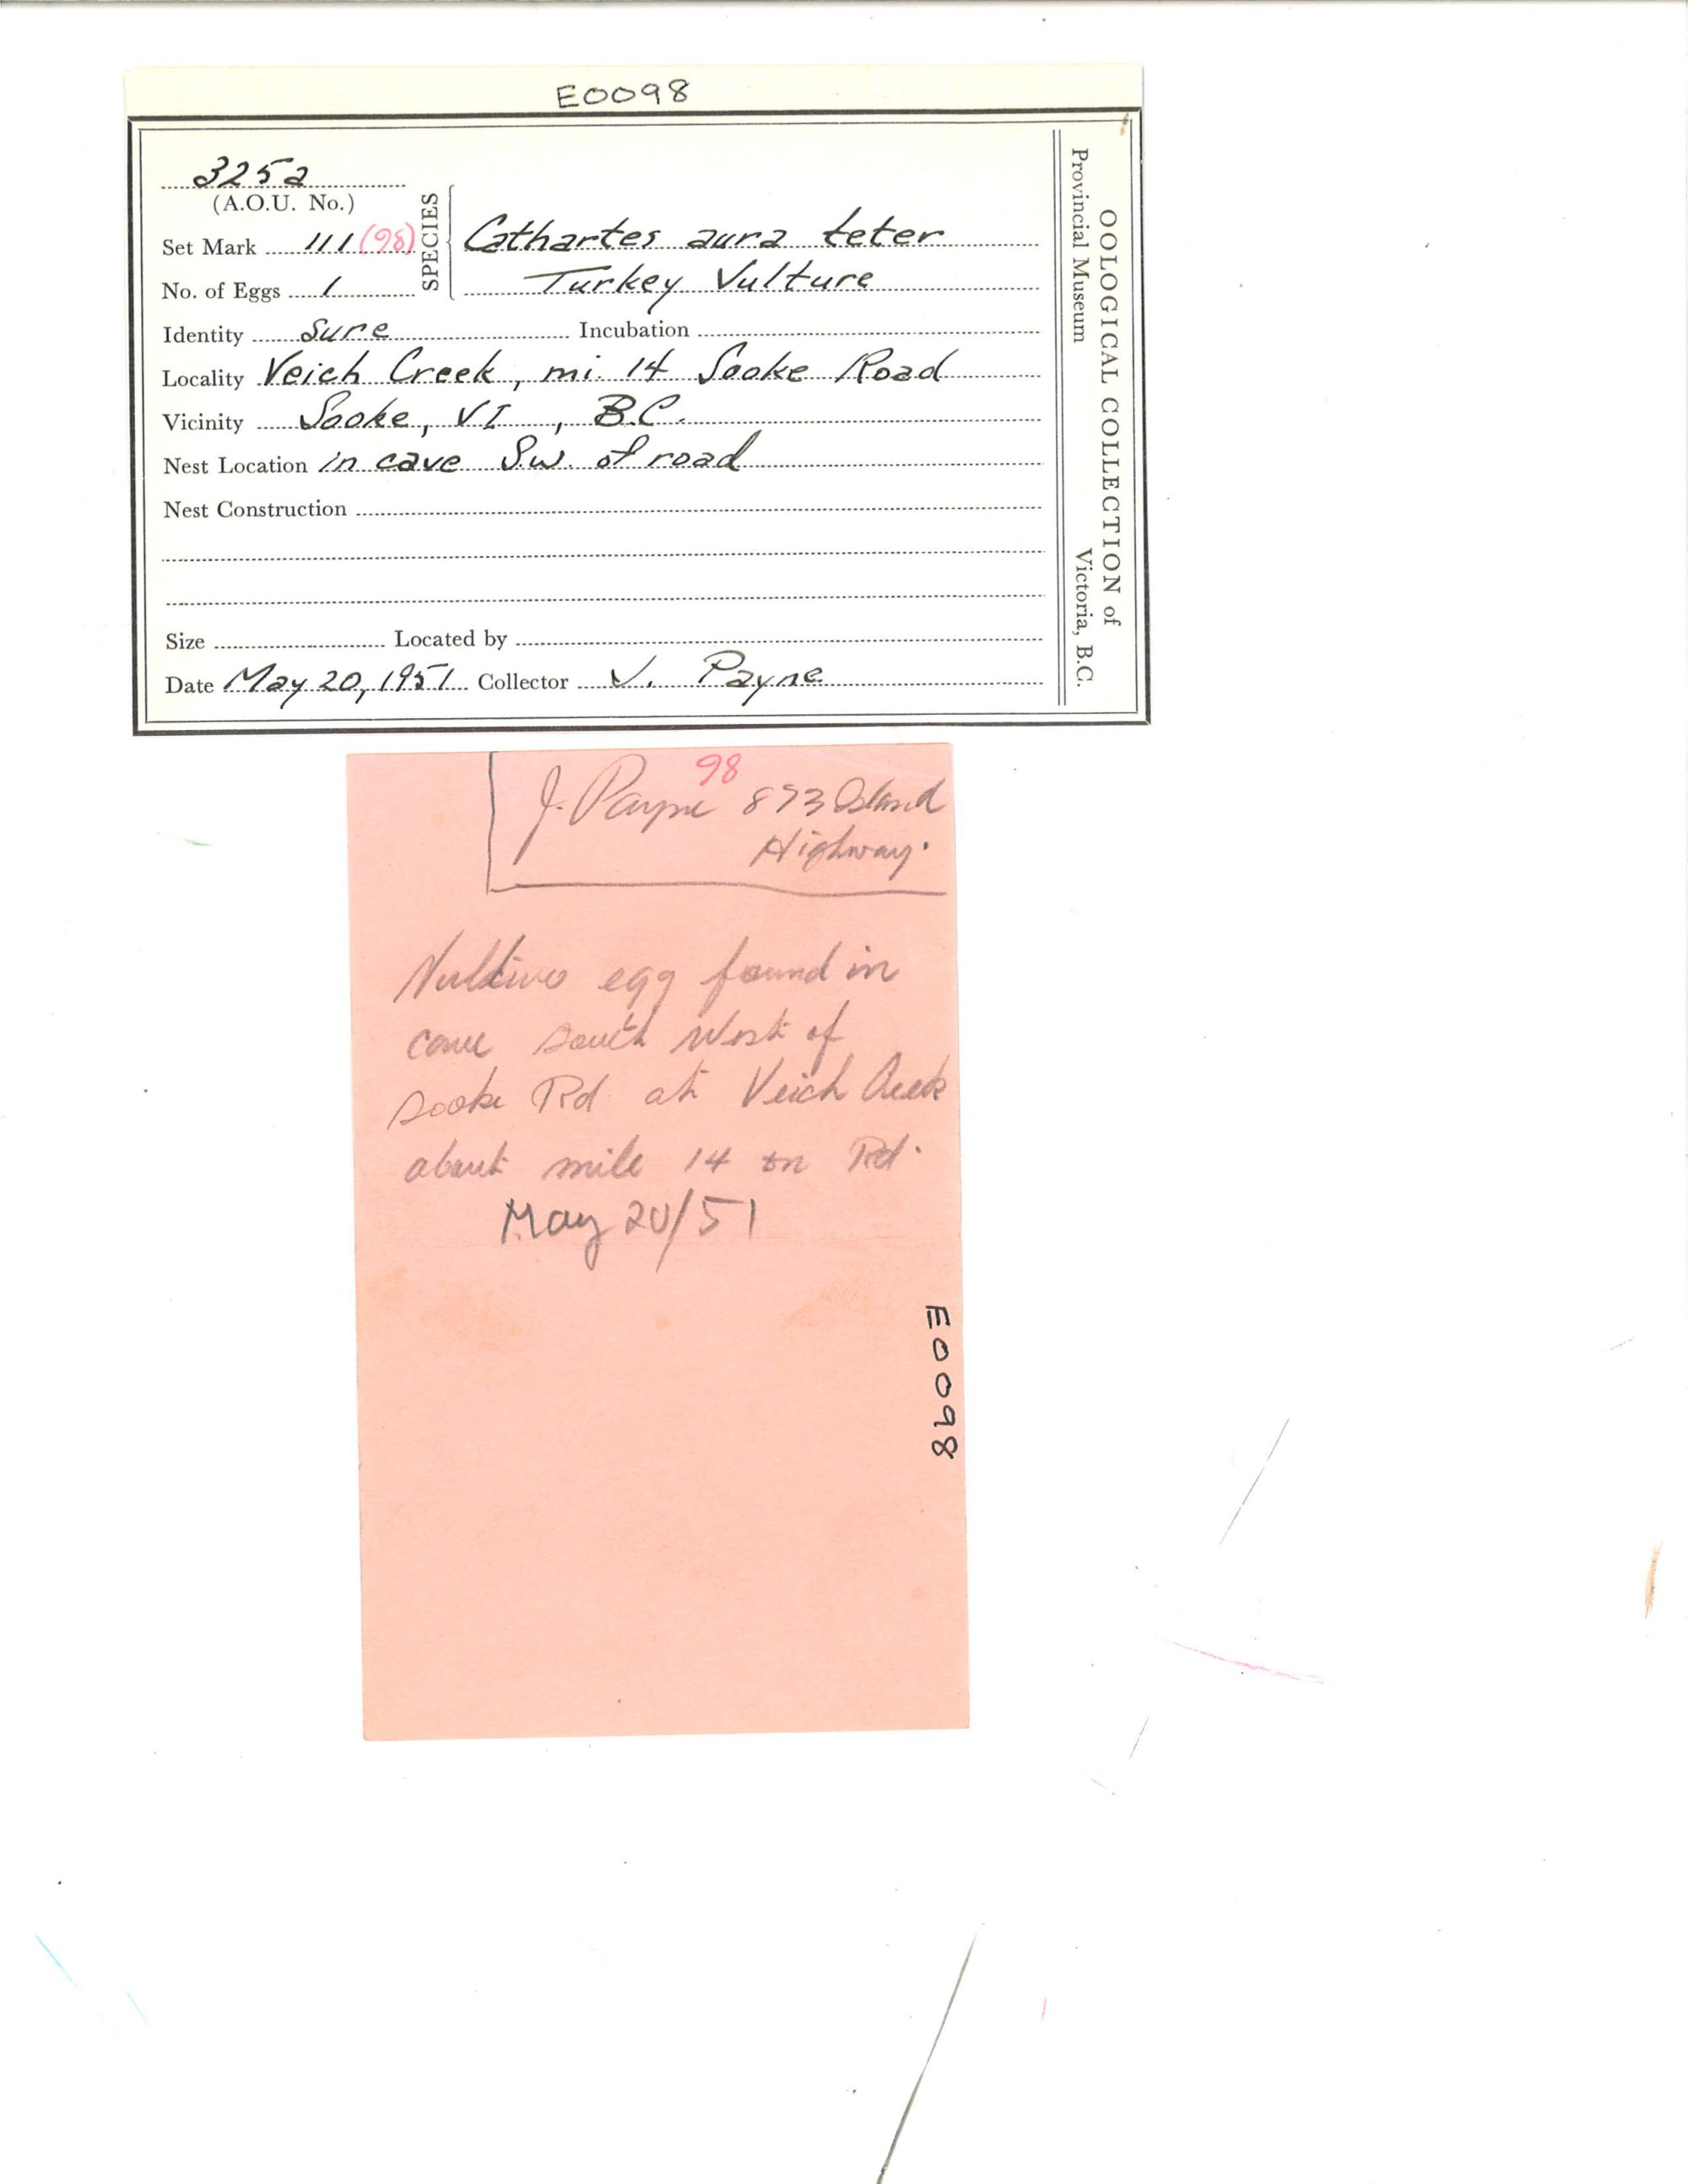 E0098
325a
(A.O.U. No.)
Set Mark 111 (98)
No. of Eggs 1
SPECIES
Cathartes aura teter
Turkey Vulture
Identity Sure Incubation
Locality Veich Creek, mi. 14 Sooke Road
Vicinity Sooke, VI, B.C.
Nest Location in cave S.W. of road
Nest Construction
Size Located by
Date May 20, 1951 Collector J. Payne
OOLOGICAL COLLECTION of
Provincial Museum Victoria, B.C.
98
J. Payne 873 Island
Highway.
egg found in
cave South West of
Sooke Rd at Veich Creek
about mile 14 on Rd.
May 20/51
E0098